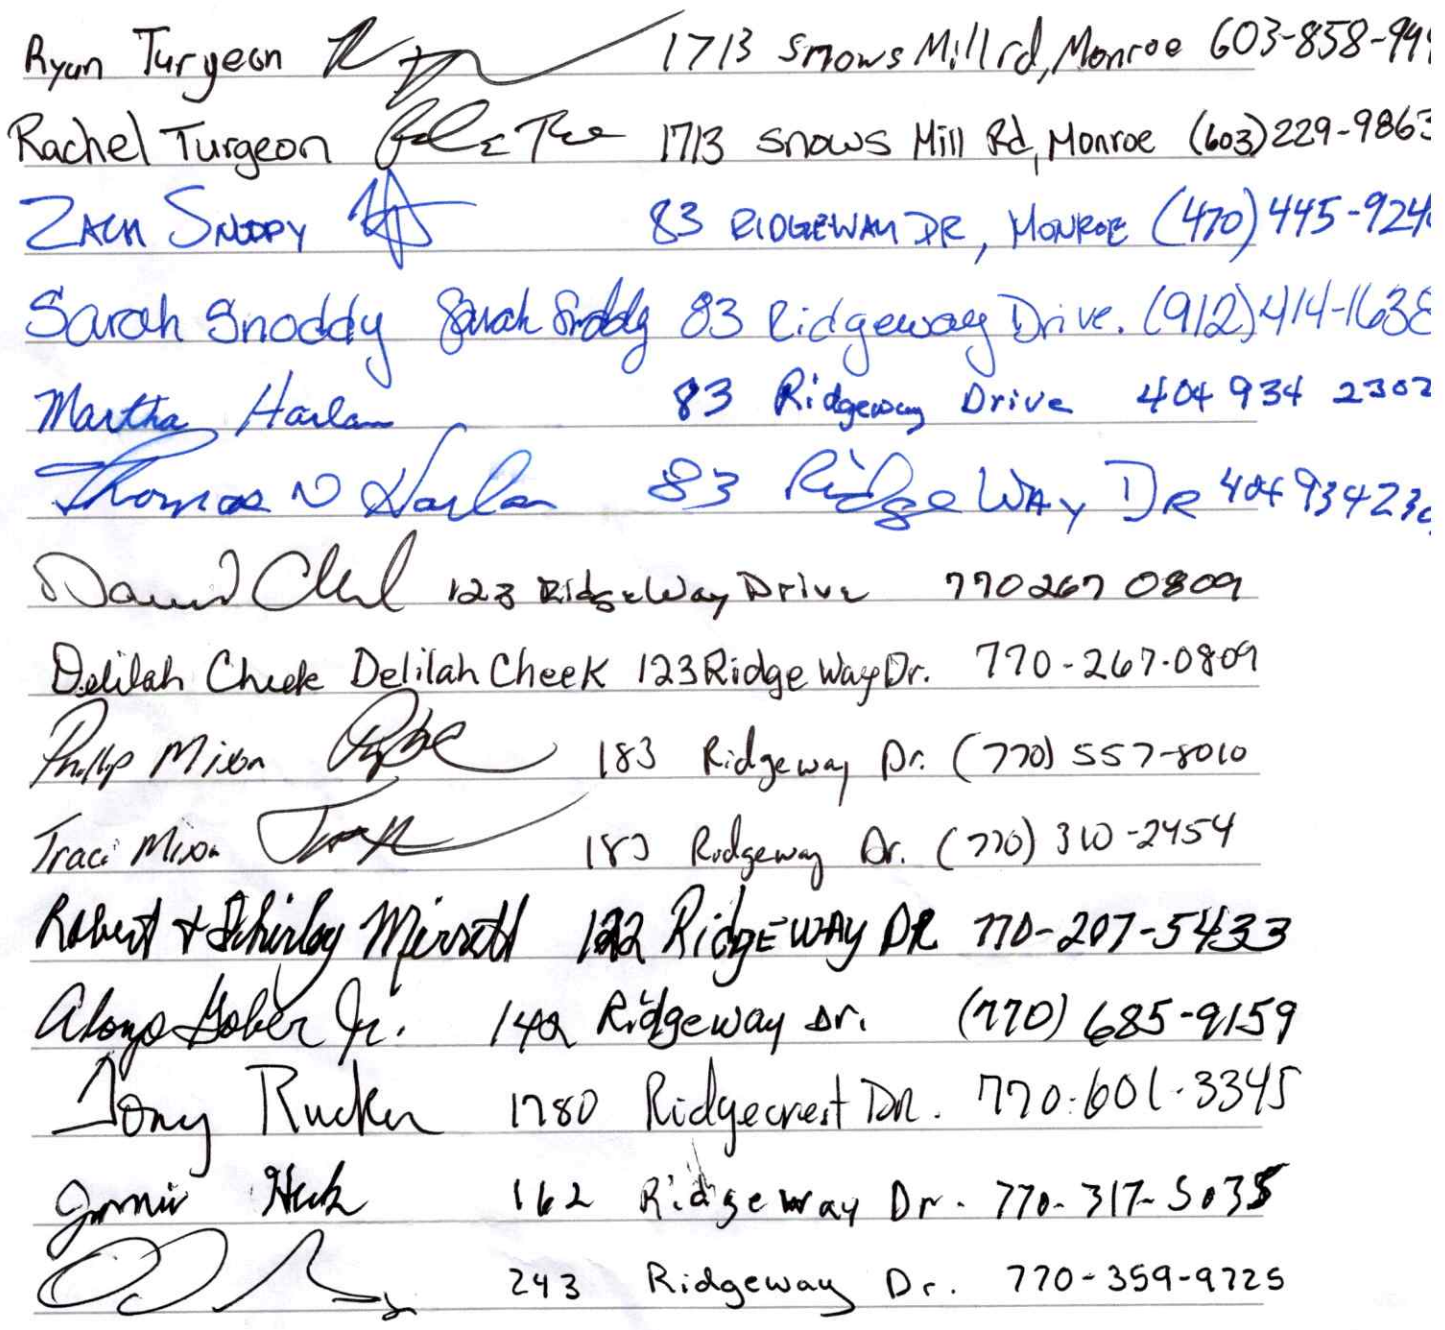 Ryan Turgeon 1713 Snows Mill rd, Monroe 603-858-99
Rachel Turgeon 1713 Snows Mill Rd, Monroe (603) 229-9863
ZACH SNODDY 83 RIDGEWAY DR, MONROE (470) 445-924
Sarah Snoddy Sarah Snoddy 83 Ridgeway Drive. (912) 414-1638
Martha Harlan 83 Ridgeway Drive 404 934 2302
Thomas N Harlan 83 RidgeWAY DR 404 934 230
David 123 RidgeWay Drive 770 267 0809
Delilah Cheek Delilah Cheek 123 Ridge Way Dr. 770-267-0809
Phillip Mixon 183 Ridgeway Dr. (770) 557-8010
Traci Mixon 183 Ridgeway Dr. (770) 310-2454
Robert & Shirley 122 RidgEWAY DR 770-207-5433
Alonzo Gober Jr. 142 Ridgeway Dr. (770) 685-9159
Tony Rucker 1780 Ridgecrest DR. 770-601-3345
162 Ridgeway Dr. 770-317-5035
243 Ridgeway Dr. 770-359-9725